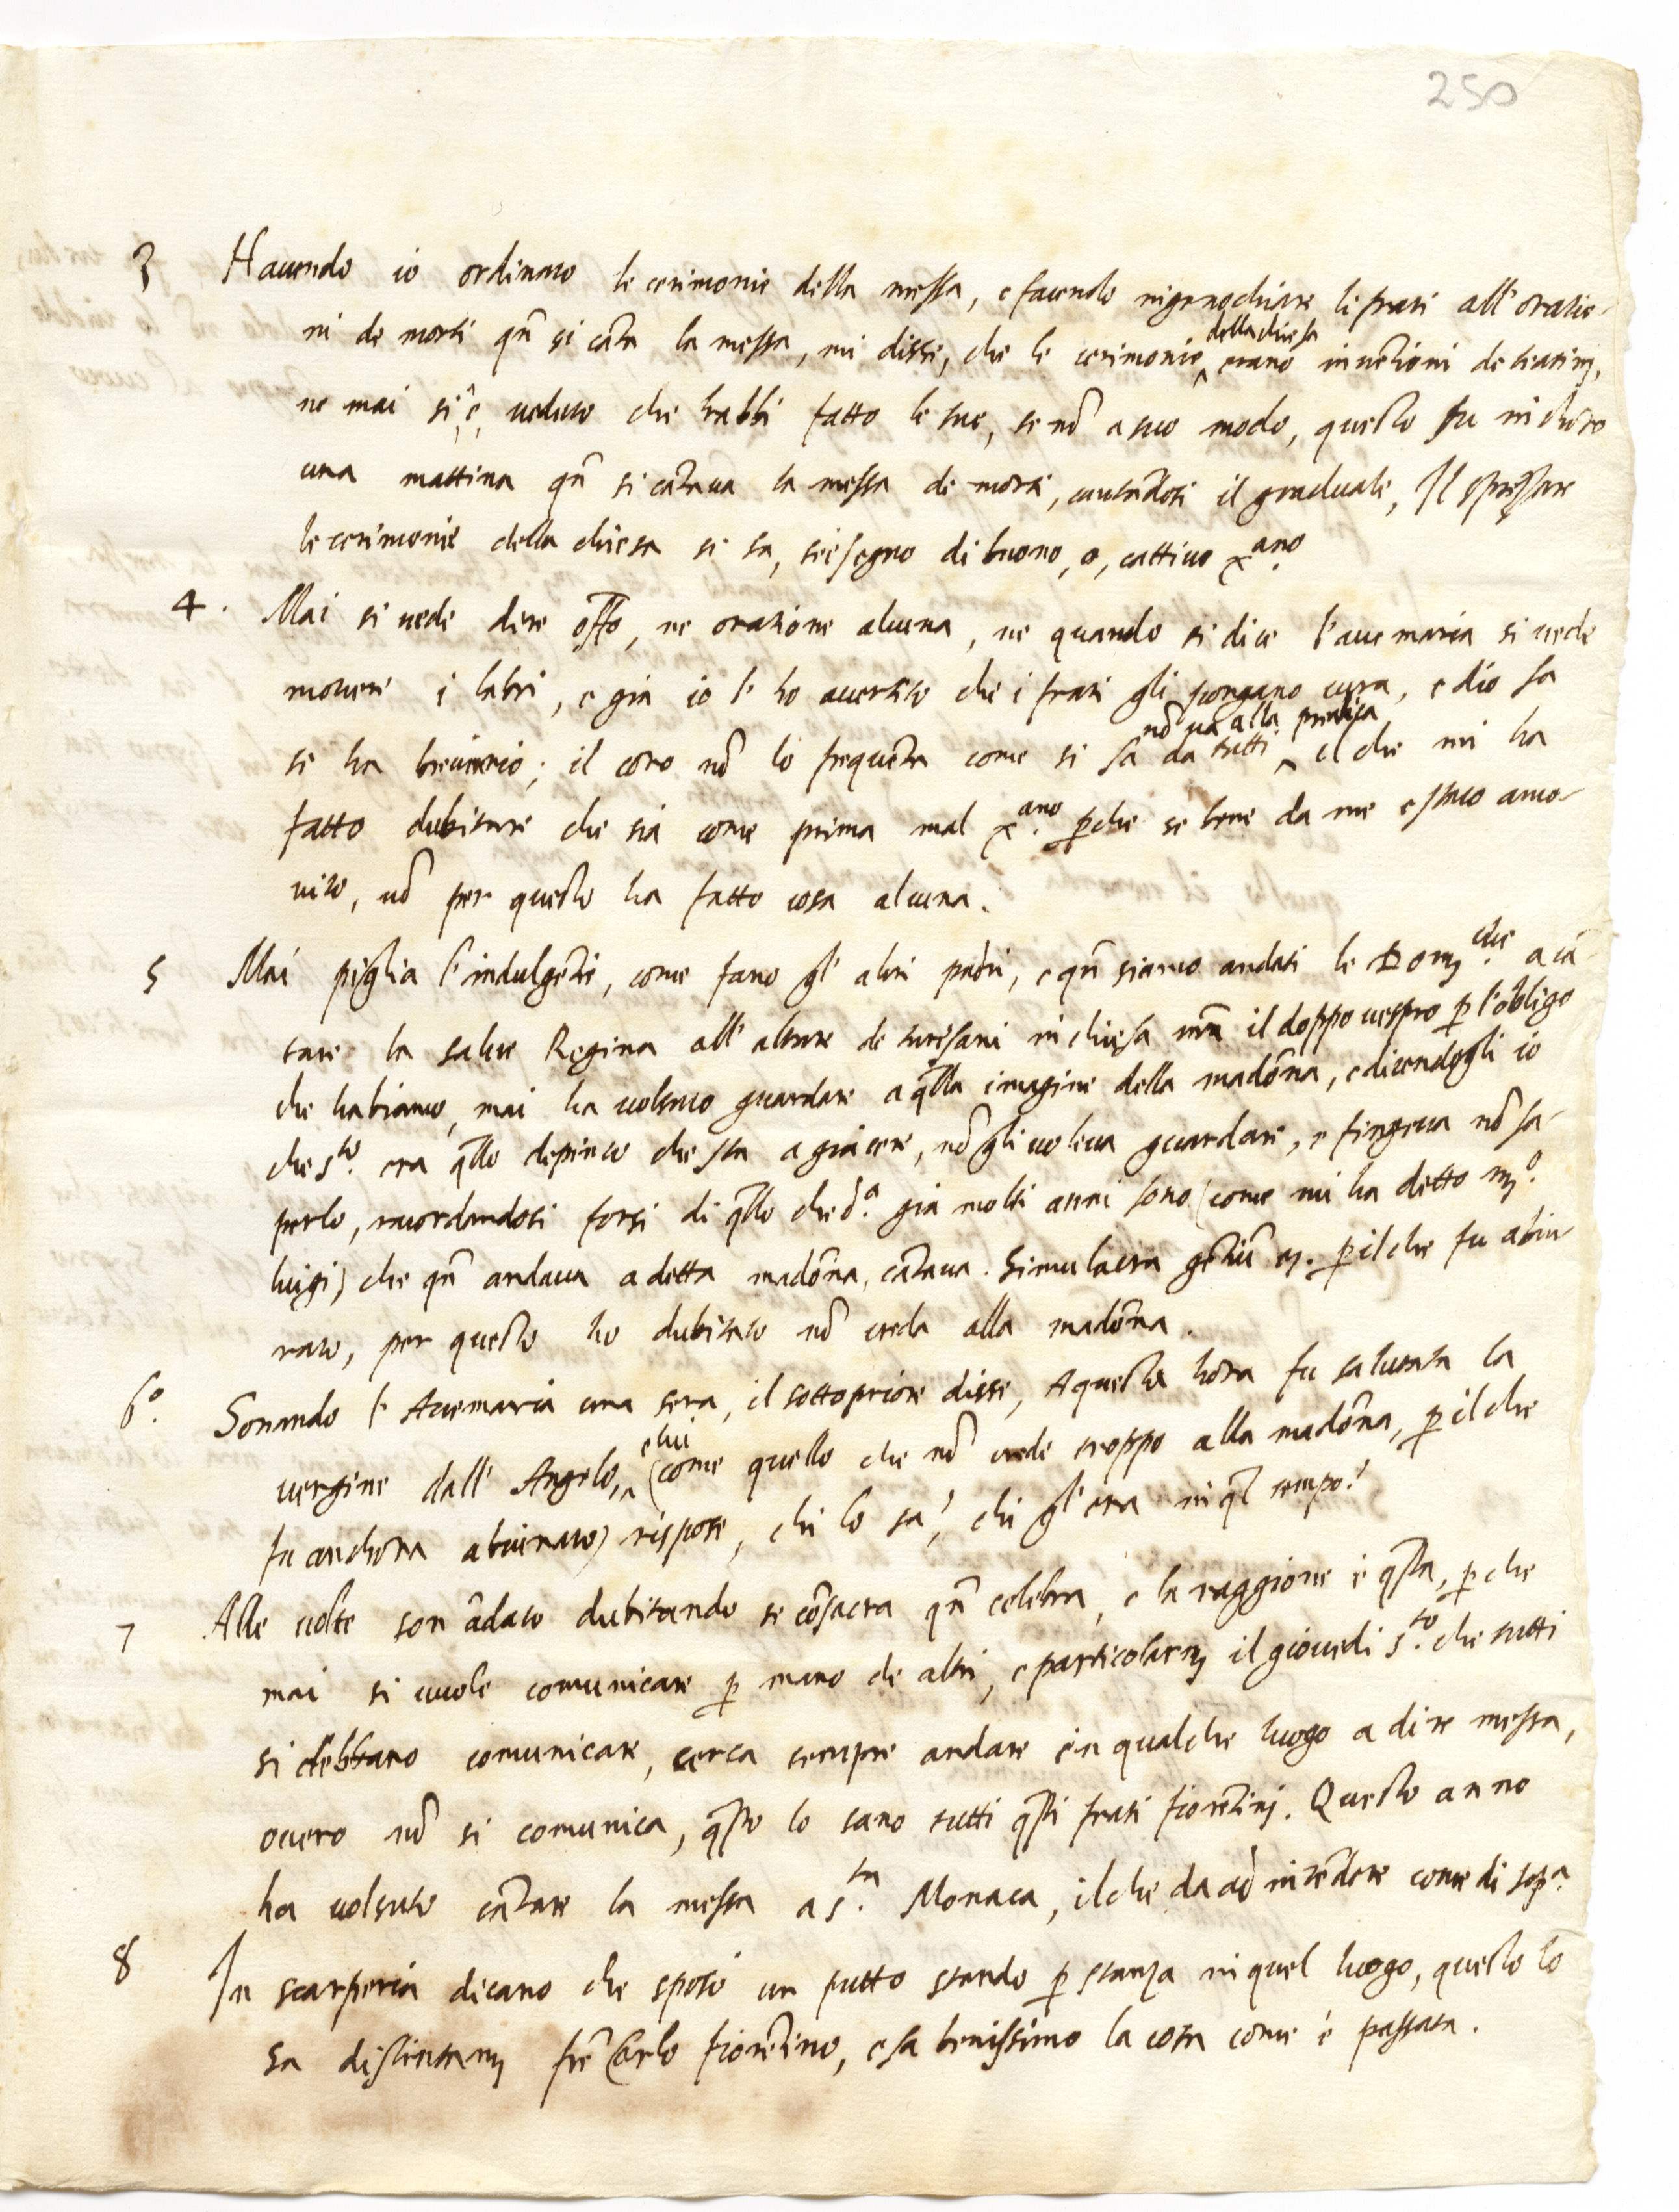 250
3 Havendo io ordinato le cerimonie della messa, e facendo ingenochiare li frati all'oratio-
ni de morti qñ si cãta la messa, mi disse, che le cerimonie ^della chiesa erano invẽtioni de teatini,
ne mai si è, veduto che habbi fatto le sue, se nõ a suo modo, questo fu in choro
una mattina qñ si cãtava la messa de morti, cantãdosi il graduale, Il sprezzare
le cerimonie della chiesa si sa, si è segno di buono, o, cattivo x.ano
4. Mai si vede dire offo, ne oratione alcuna, ne quando si dice l'ave maria si vede
movere i labri, e già io l'ho avertito che i frati gli pongano cura, e dio sa
se ha breviario; il coro nõ lo frequẽta come si sa da tutti ^nõ va alla predica, il che mi ha
fatto dubitare che sia come prima mal x.ano p̱che se bene da me è stato amo-
nito, nõ per questo ha fatto cosa alcuna.
5 Mai piglia l'indulgẽtie, come fano gl'altri padri, e qñ siamo andati le Dom.che a cã
tare la salve Regina all'altare de in chiesa nr̃a il doppo vespro p̱ l'obligo
che habiamo, mai ha volsuto guardare a q̃lla imagine della madõna, e dicendogli io
che s.to era q̃llo depinto che sta a giacere, nõ gli voleva guardare, e fingeva nõ sa-
perlo, racordandosi forsi di q̃llo che d.a già molti anni sono (come mi ha detto m.o
luigi) che qñ andava a detta madõna, cãtava. Simulacra gẽtiũ ec. p̱ il che fu abiu-
rato, per questo ho dubitato nõ creda alla madõna.
6.o Sonando l'Avemaria una sera, il sottopriore disse, A questa hora fu salutata la
vergine dall'Angelo, ^e lui (come quello che nõ crede troppo alla madõna, p̱ il che
fu anchora abiurato) rispose, chi lo sa? chi gl'era in q̃l tempo?
7 Alle volte son ãdato dubitando se cõsacra qñ celebra, e la raggione è q̃sta, p̱che
mai si vuole comunicare p̱ mano de altri, e particolarm. il giovedi s.to che tutti
si debbano comunicare, cerca sempre andare in qualche luogo a dire messa,
overo nõ si comunica, q̃sto lo sano tutti q̃sti frati fiorẽtini. Questo anno
ha volsuto cãtare la messa a s.ta Monaca, il che da ad intẽdere come di sop.a
8 In scarperia dicano che sposò un putto stando p̱ stanza in quel luogo, questo lo
sa distintam. frẽ Carlo fiorẽtino, e sa benissimo la cosa come è passata.